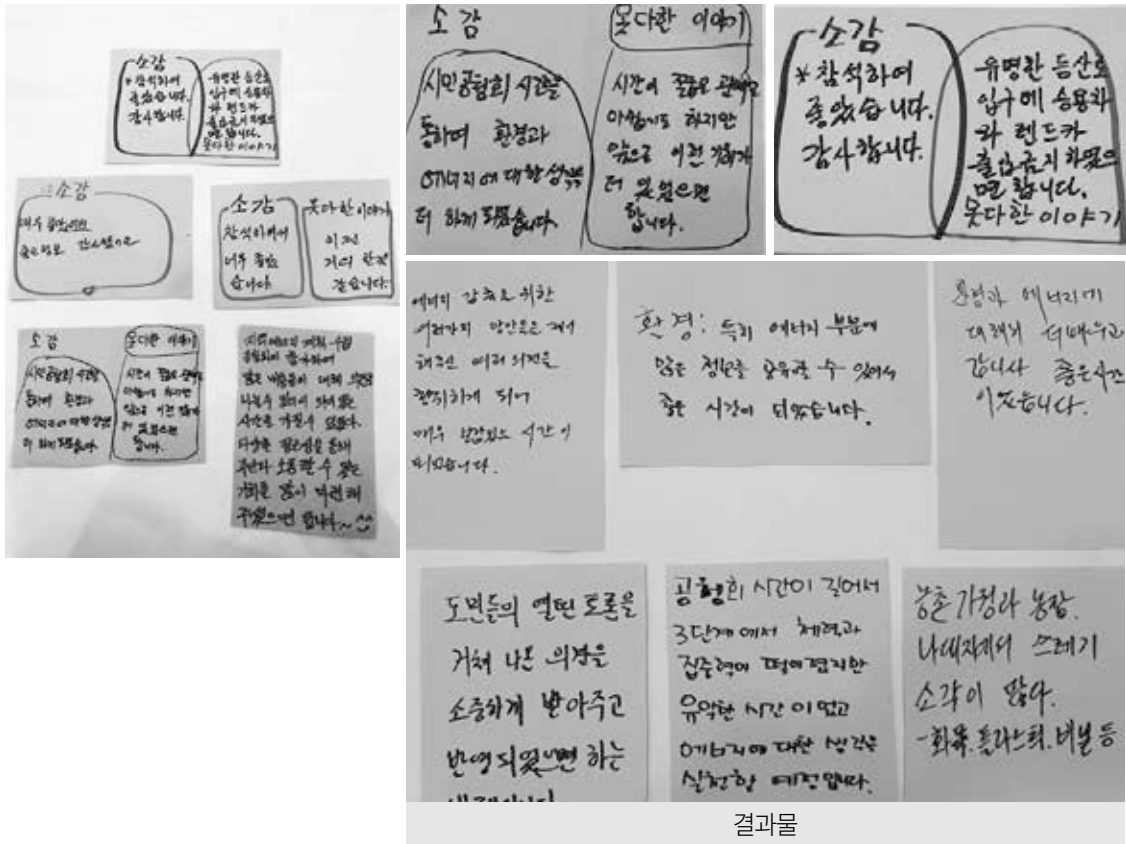 소감
* 참석하여
좋았습니다.
감사합니다.
유명한 등산로
입구에 승용차
와 렌드카
출입금지 하였으
면 합니다.
못다한 이야기
소감
매우
소감
참석하여서
너무 좋았
습니다
못다한 이야기
이젠
거의 한것
같습니다.
소감
시민공청회 시간을
통하여 환경과
에너지에 대한
더 하게 되었습니다.
못다한 이야기
시간이
아쉽기도 하지만
앞으로 이런
더 있었으면
합니다.
참가하여
많은
나눌수
시간을 가질수 있었다.
소통할 수 있는
기회를 많이 마련해
주셨으면 합니다~ ^^
소감
시민공청회 시간을
통하여 환경과
에너지에 대한
더 하게 되었습니다.
못다한 이야기
시간이
아쉽기도 하지만
앞으로 이런
더 있었으면
합니다.
소감
* 참석하여
좋았습니다.
감사합니다.
유명한 등산로
입구에 승용차
와 렌드카
출입금지 하였으
면 합니다.
못다한 이야기
에너지 감축을 위한
여러가지 방안들은
여러 의견을
되어
매우 시간이
되었습니다.
환경: 특히 에너지 부분에
많은 정보를 공유할 수 있어서
좋은 시간이 되었습니다.
환경과 에너지에
대해서 더 배우고
갑니다 좋은시간
이었습니다.
도민들의 열띤 토론을
거쳐 나온 의견을
소중하게 받아주고
반영되었으면 하는
공청회 시간이 길어서
3단계에서 체력과
집중력이 떨어졌지만
유익한 시간이었고
에너지에 대한 생각을
실천할 예정입니다.
농촌 가정과 농장.
나대지에서 쓰레기
소각이 많다.
-화목.플라스틱.비닐 등
결과물